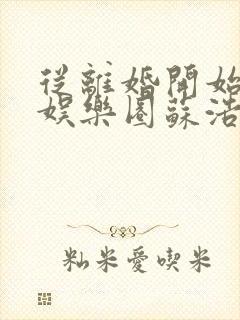 從離婚開始
娛樂圈蘇浩
籼米愛喫米